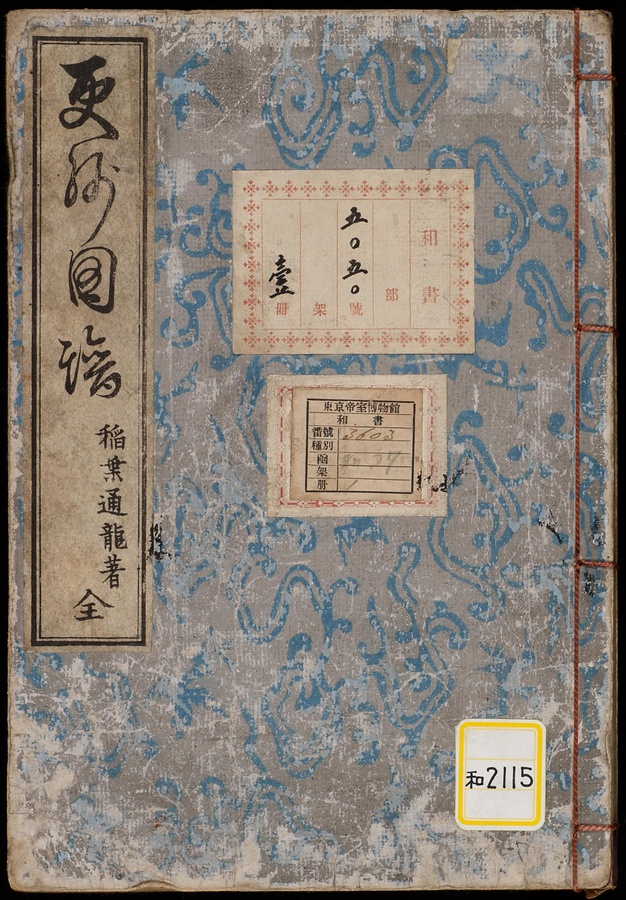 更紗圖譜
稲葉通龍著 全
和書
部
五〇五〇號
架
壹冊
東京帝室博物館
和書
番號 3603
種別
函
架
册 1
和2115